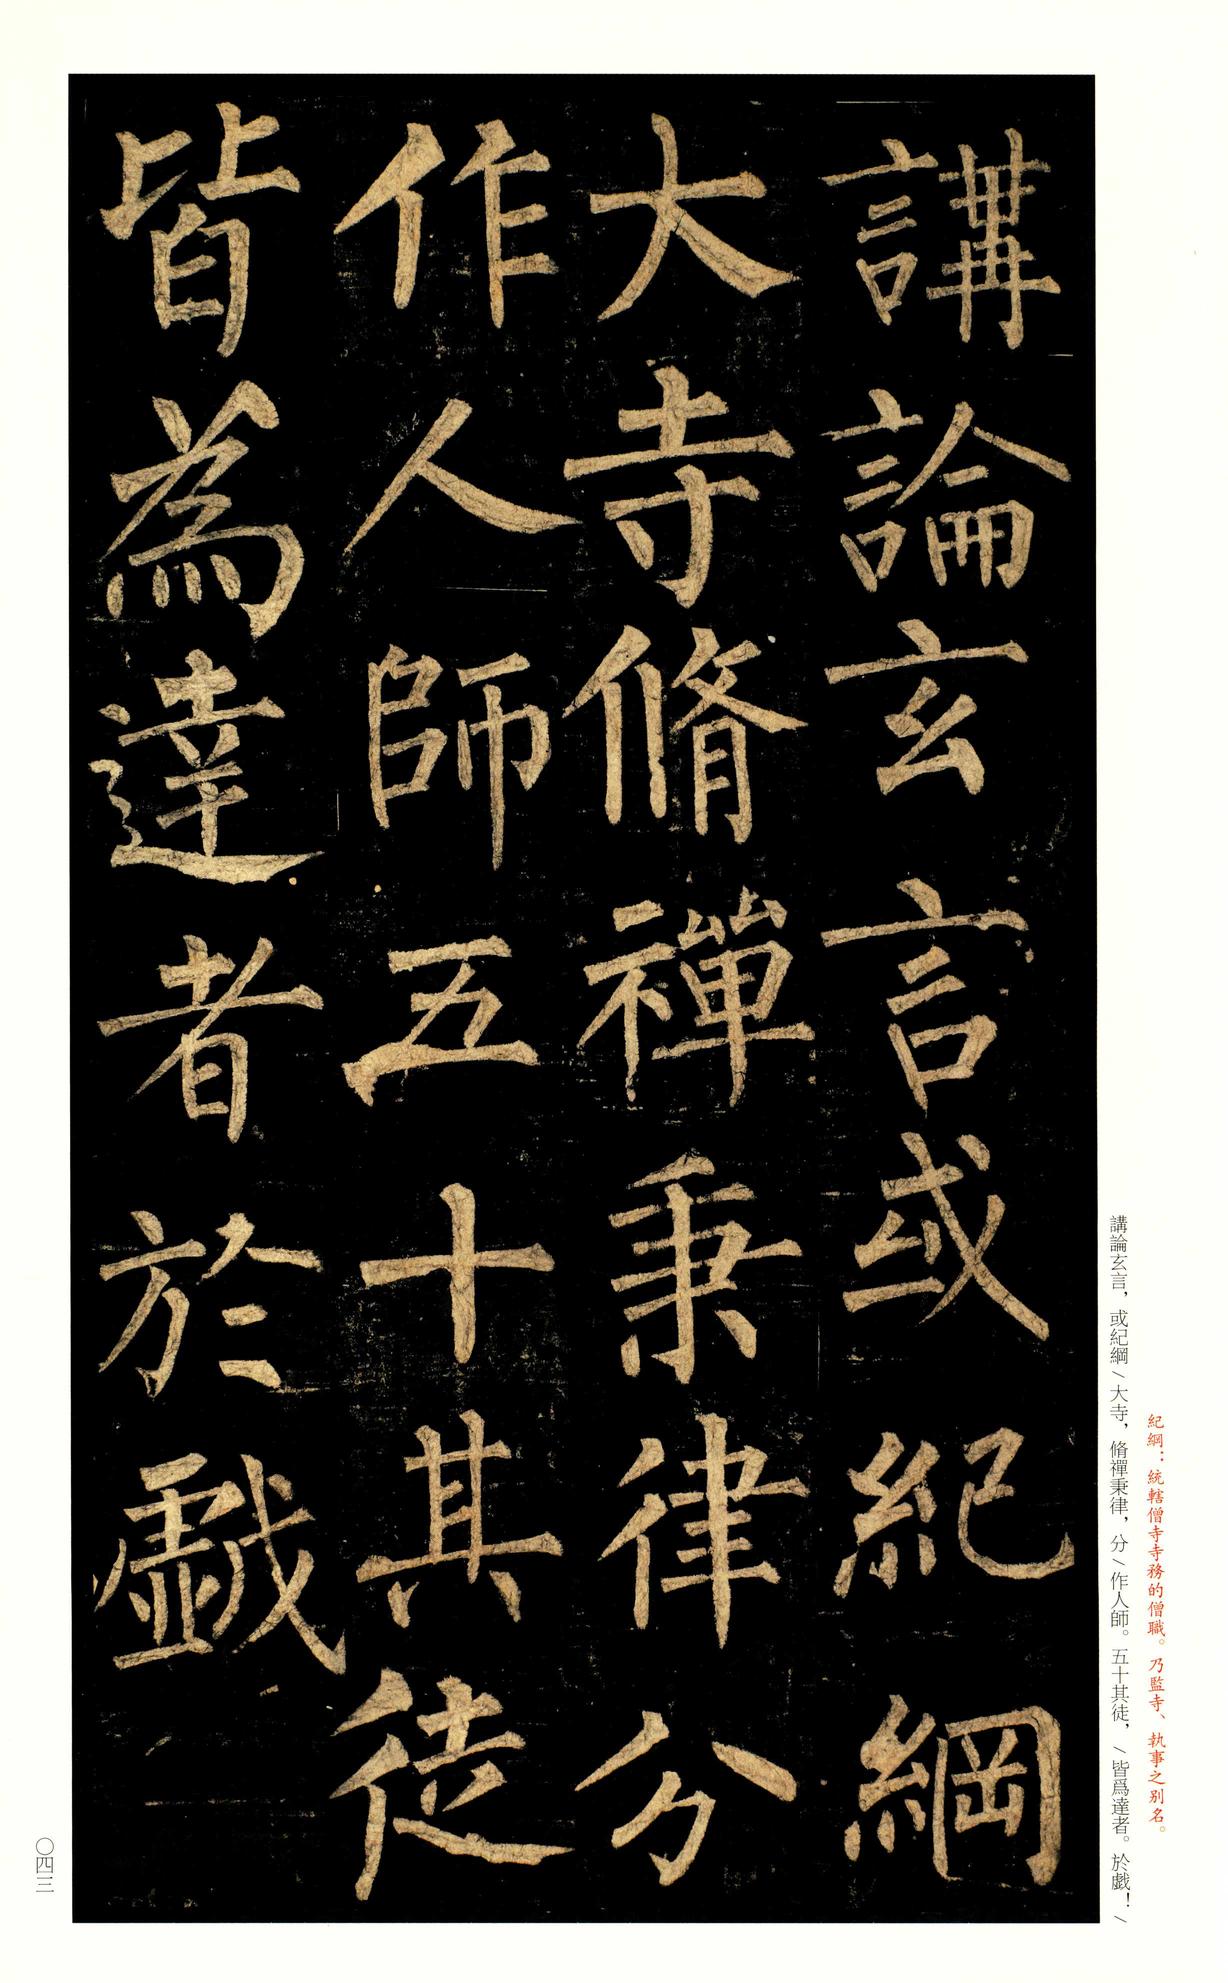 紀綱：統轄僧寺寺務的僧職。乃監寺、執事之別名。
講論玄言，或紀綱＼大寺，脩禪秉律，分＼作人師。五十其徒，＼皆爲達者。於戲！＼
講論玄言或紀綱
大寺脩禪秉律分
作人師五十其徒
皆為達者於戲
〇四三